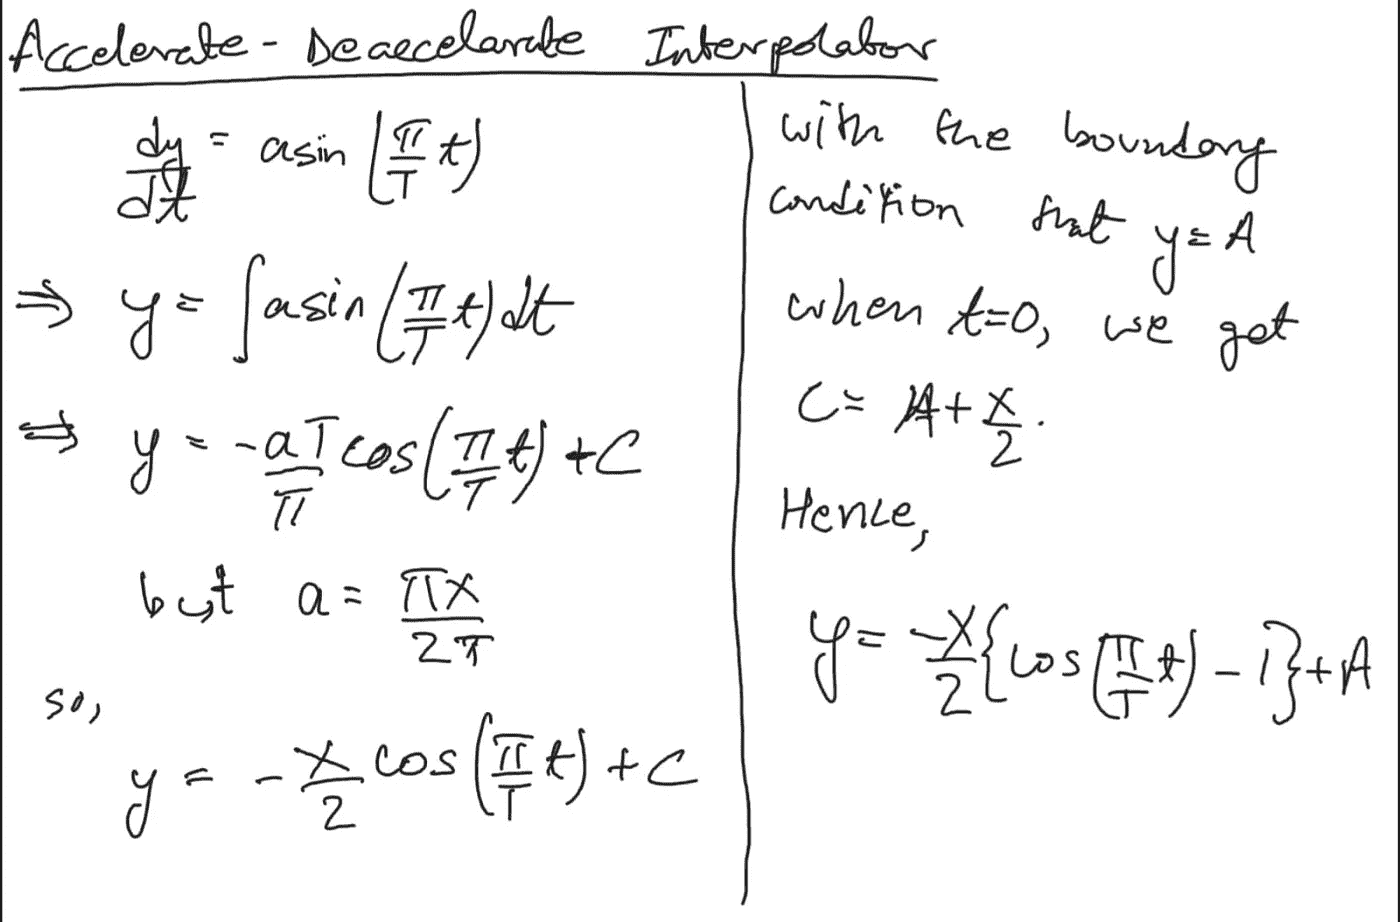 Accelerate - Deaecelarate Interpolator
dy/dt = asin (π/T t)
⇒ y = ∫asin (π/T t) dt
⇒ y = -aT/π cos(π/T t) + C
but a = πX/2T
so,
y = -X/2 cos (π/T t) + C
with the boundary
condition that y = A
when t=0, we get
C = A + X/2.
Hence,
y = -X/2 {cos (π/T t) - 1} + A